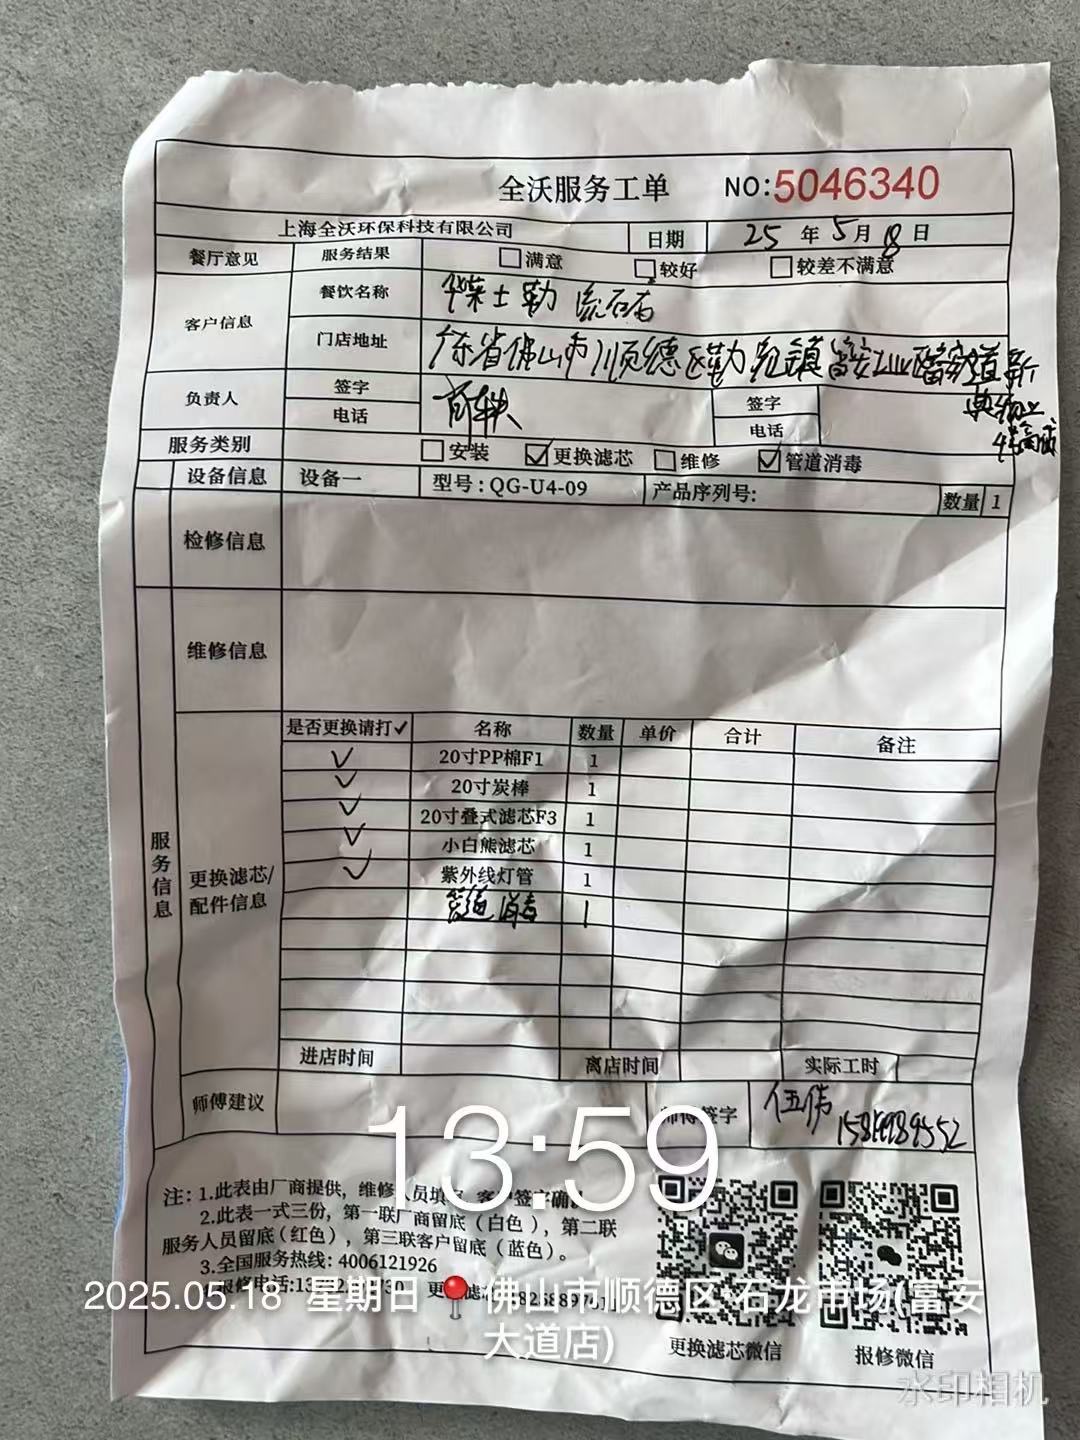 全沃服务工单 NO:5046340
上海全沃环保科技有限公司 日期 25 年 5 月 18 日
餐厅意见 服务结果 满意 较好 较差不满意
客户信息 餐饮名称 华莱士 勒流
门店地址 广东省佛山市顺德区勒流镇富安工业区富安大道新
4号商
负责人 签字 签字
电话 电话
服务类别 安装 ✓更换滤芯 维修 ✓管道消毒
设备信息 设备一 型号:QG-U4-09 产品序列号: 数量 1
检修信息
维修信息
服务信息
更换滤芯/
配件信息
是否更换请打✓ 名称 数量 单价 合计 备注
✓ 20寸PP棉F1 1
✓ 20寸炭棒 1
✓ 20寸叠式滤芯F3 1
✓ 小白熊滤芯 1
✓ 紫外线灯管 1
管道消毒 1
进店时间 离店时间 实际工时
师傅建议 师傅签字 伍伟
13:59
注: 1.此表由厂商提供, 维修人员填 客户签字确
2.此表一式三份, 第一联厂商留底 (白色), 第二联
服务人员留底 (红色), 第三联客户留底 (蓝色)。
3.全国服务热线: 4006121926
报修电话:
更换滤芯微信 报修微信
2025.05.18 星期日 佛山市顺德区·石龙市场(富安
大道店)
水印相机